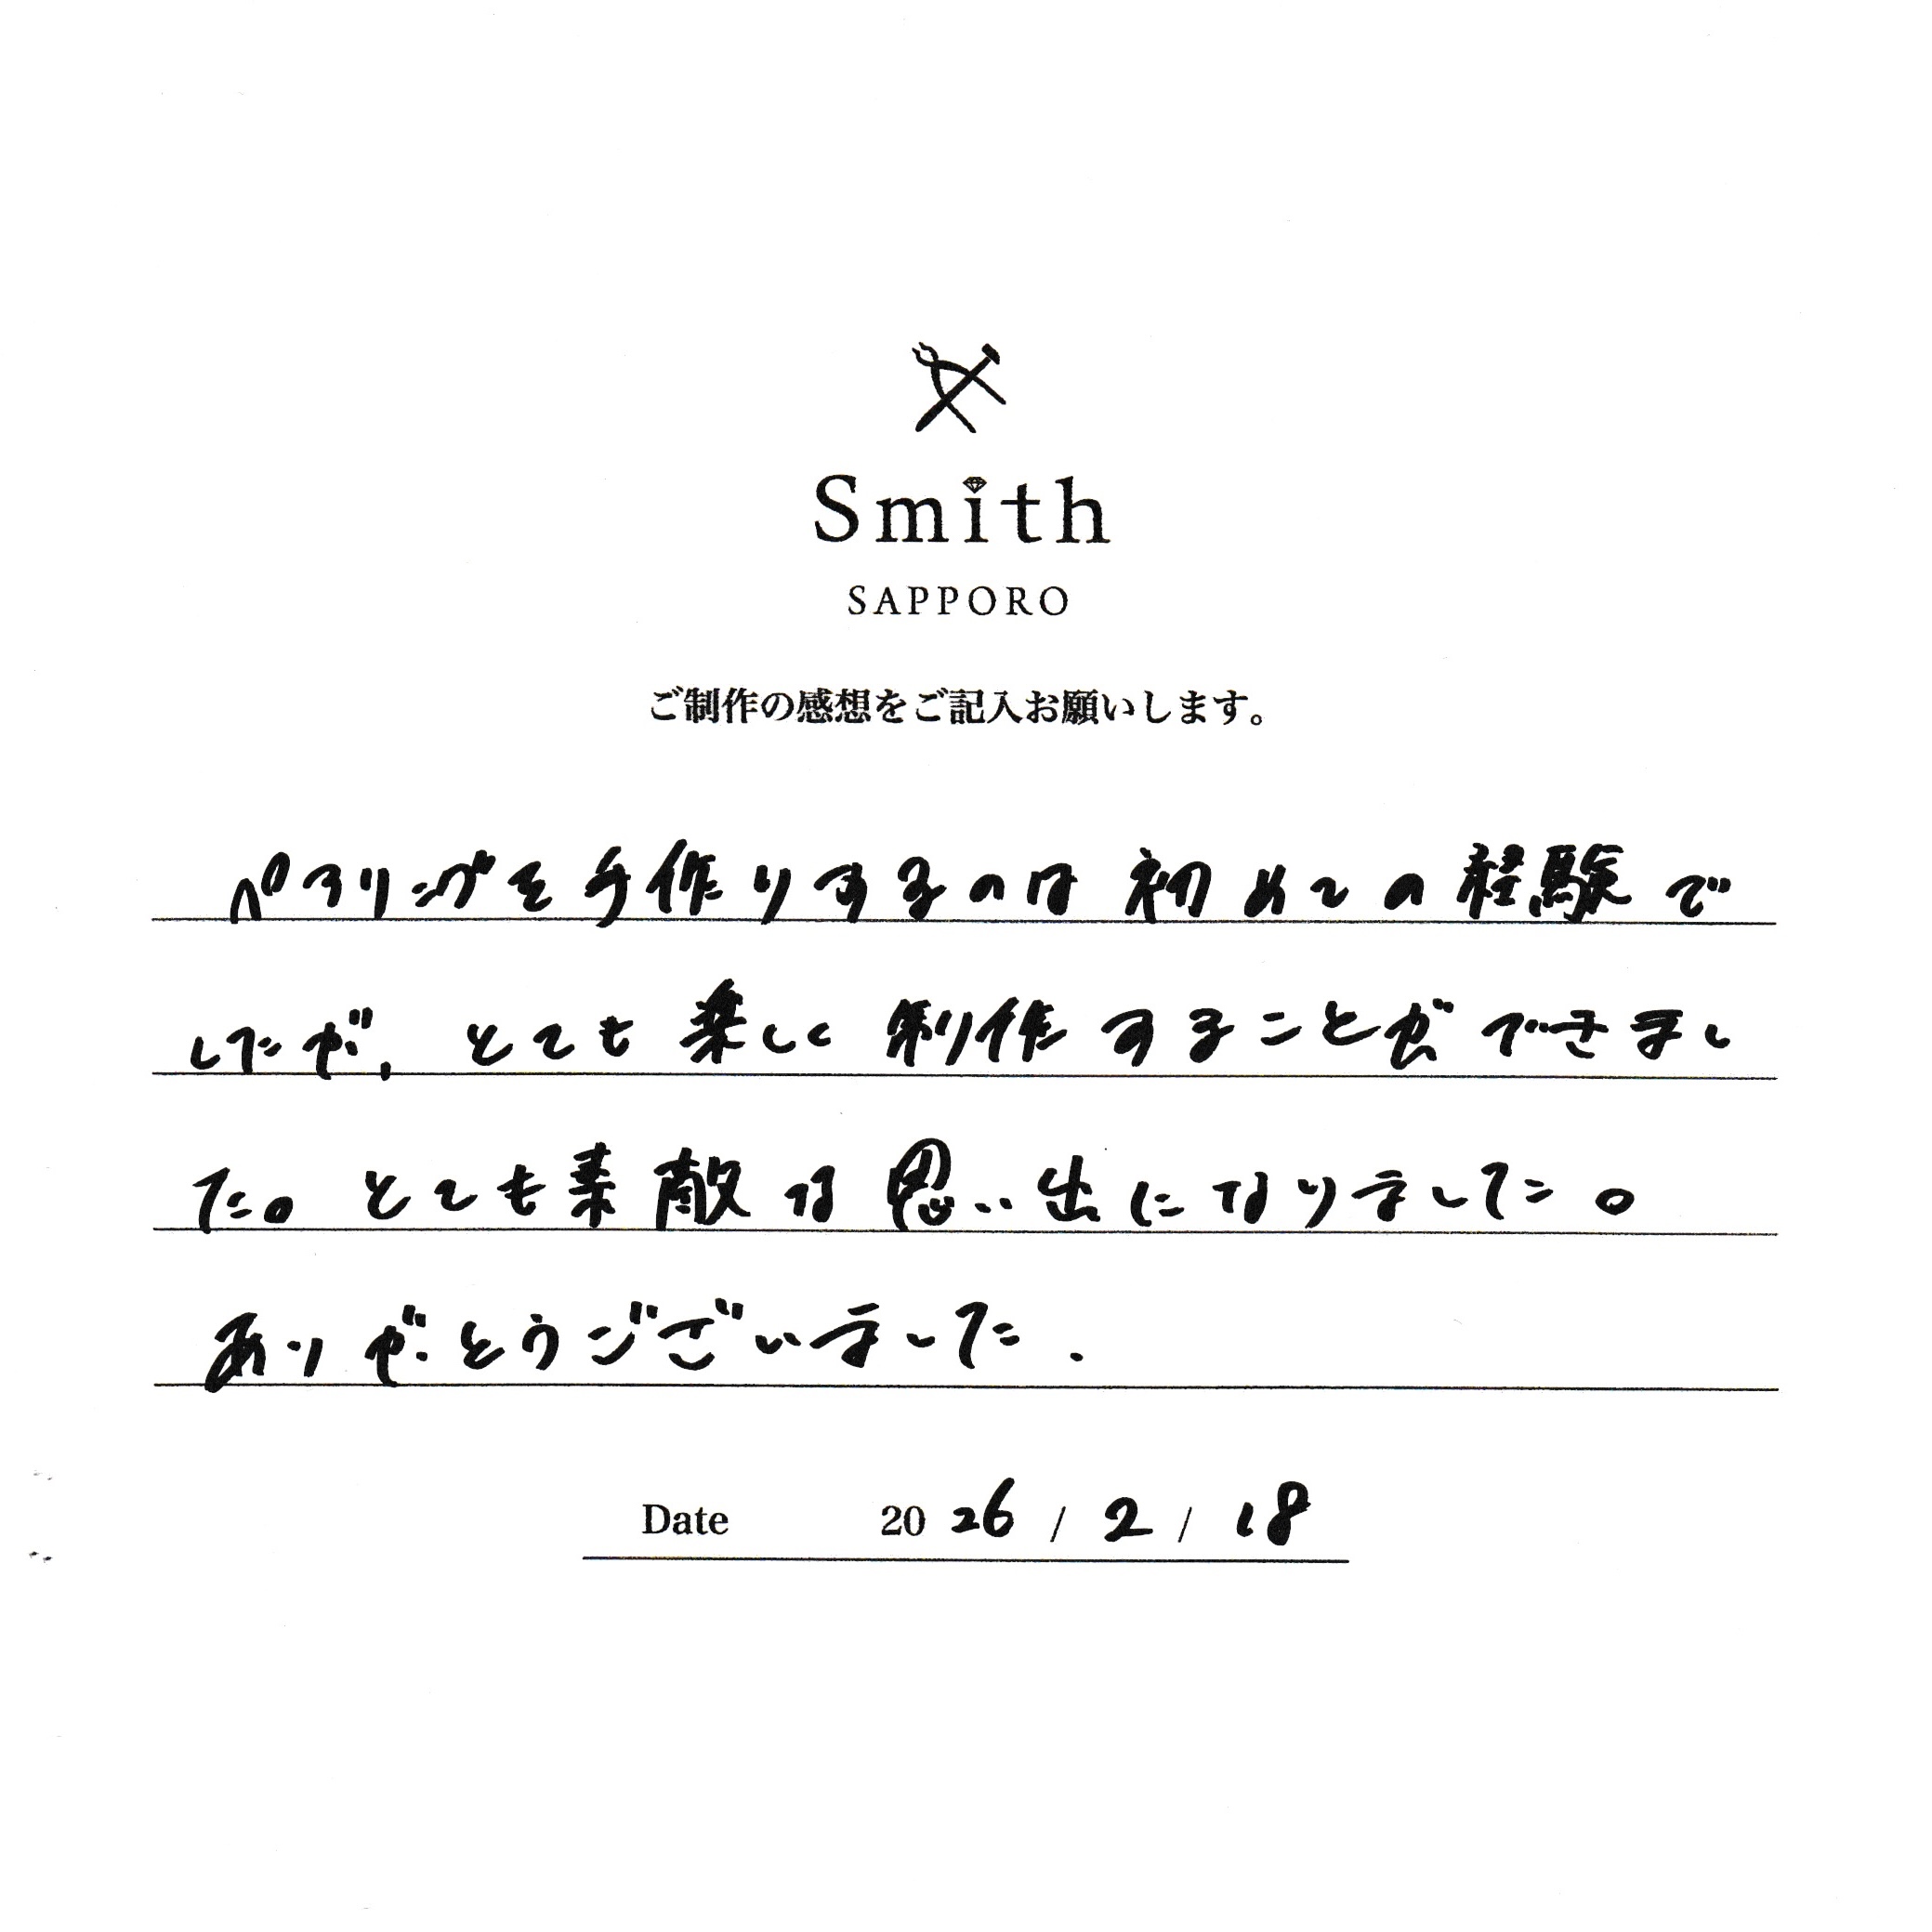 Smith
SAPPORO
ご制作の感想をご記入お願いします。
ペアリングを手作りするのは初めての経験で
したが、とても楽しく制作することができまし
た。とても素敵な思い出になりました。
ありがとうございました.
Date 2026 / 2 / 18